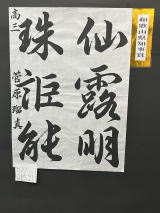 和歌山県知事賞
仙露明
珠詎能
高三 菅原瑠真